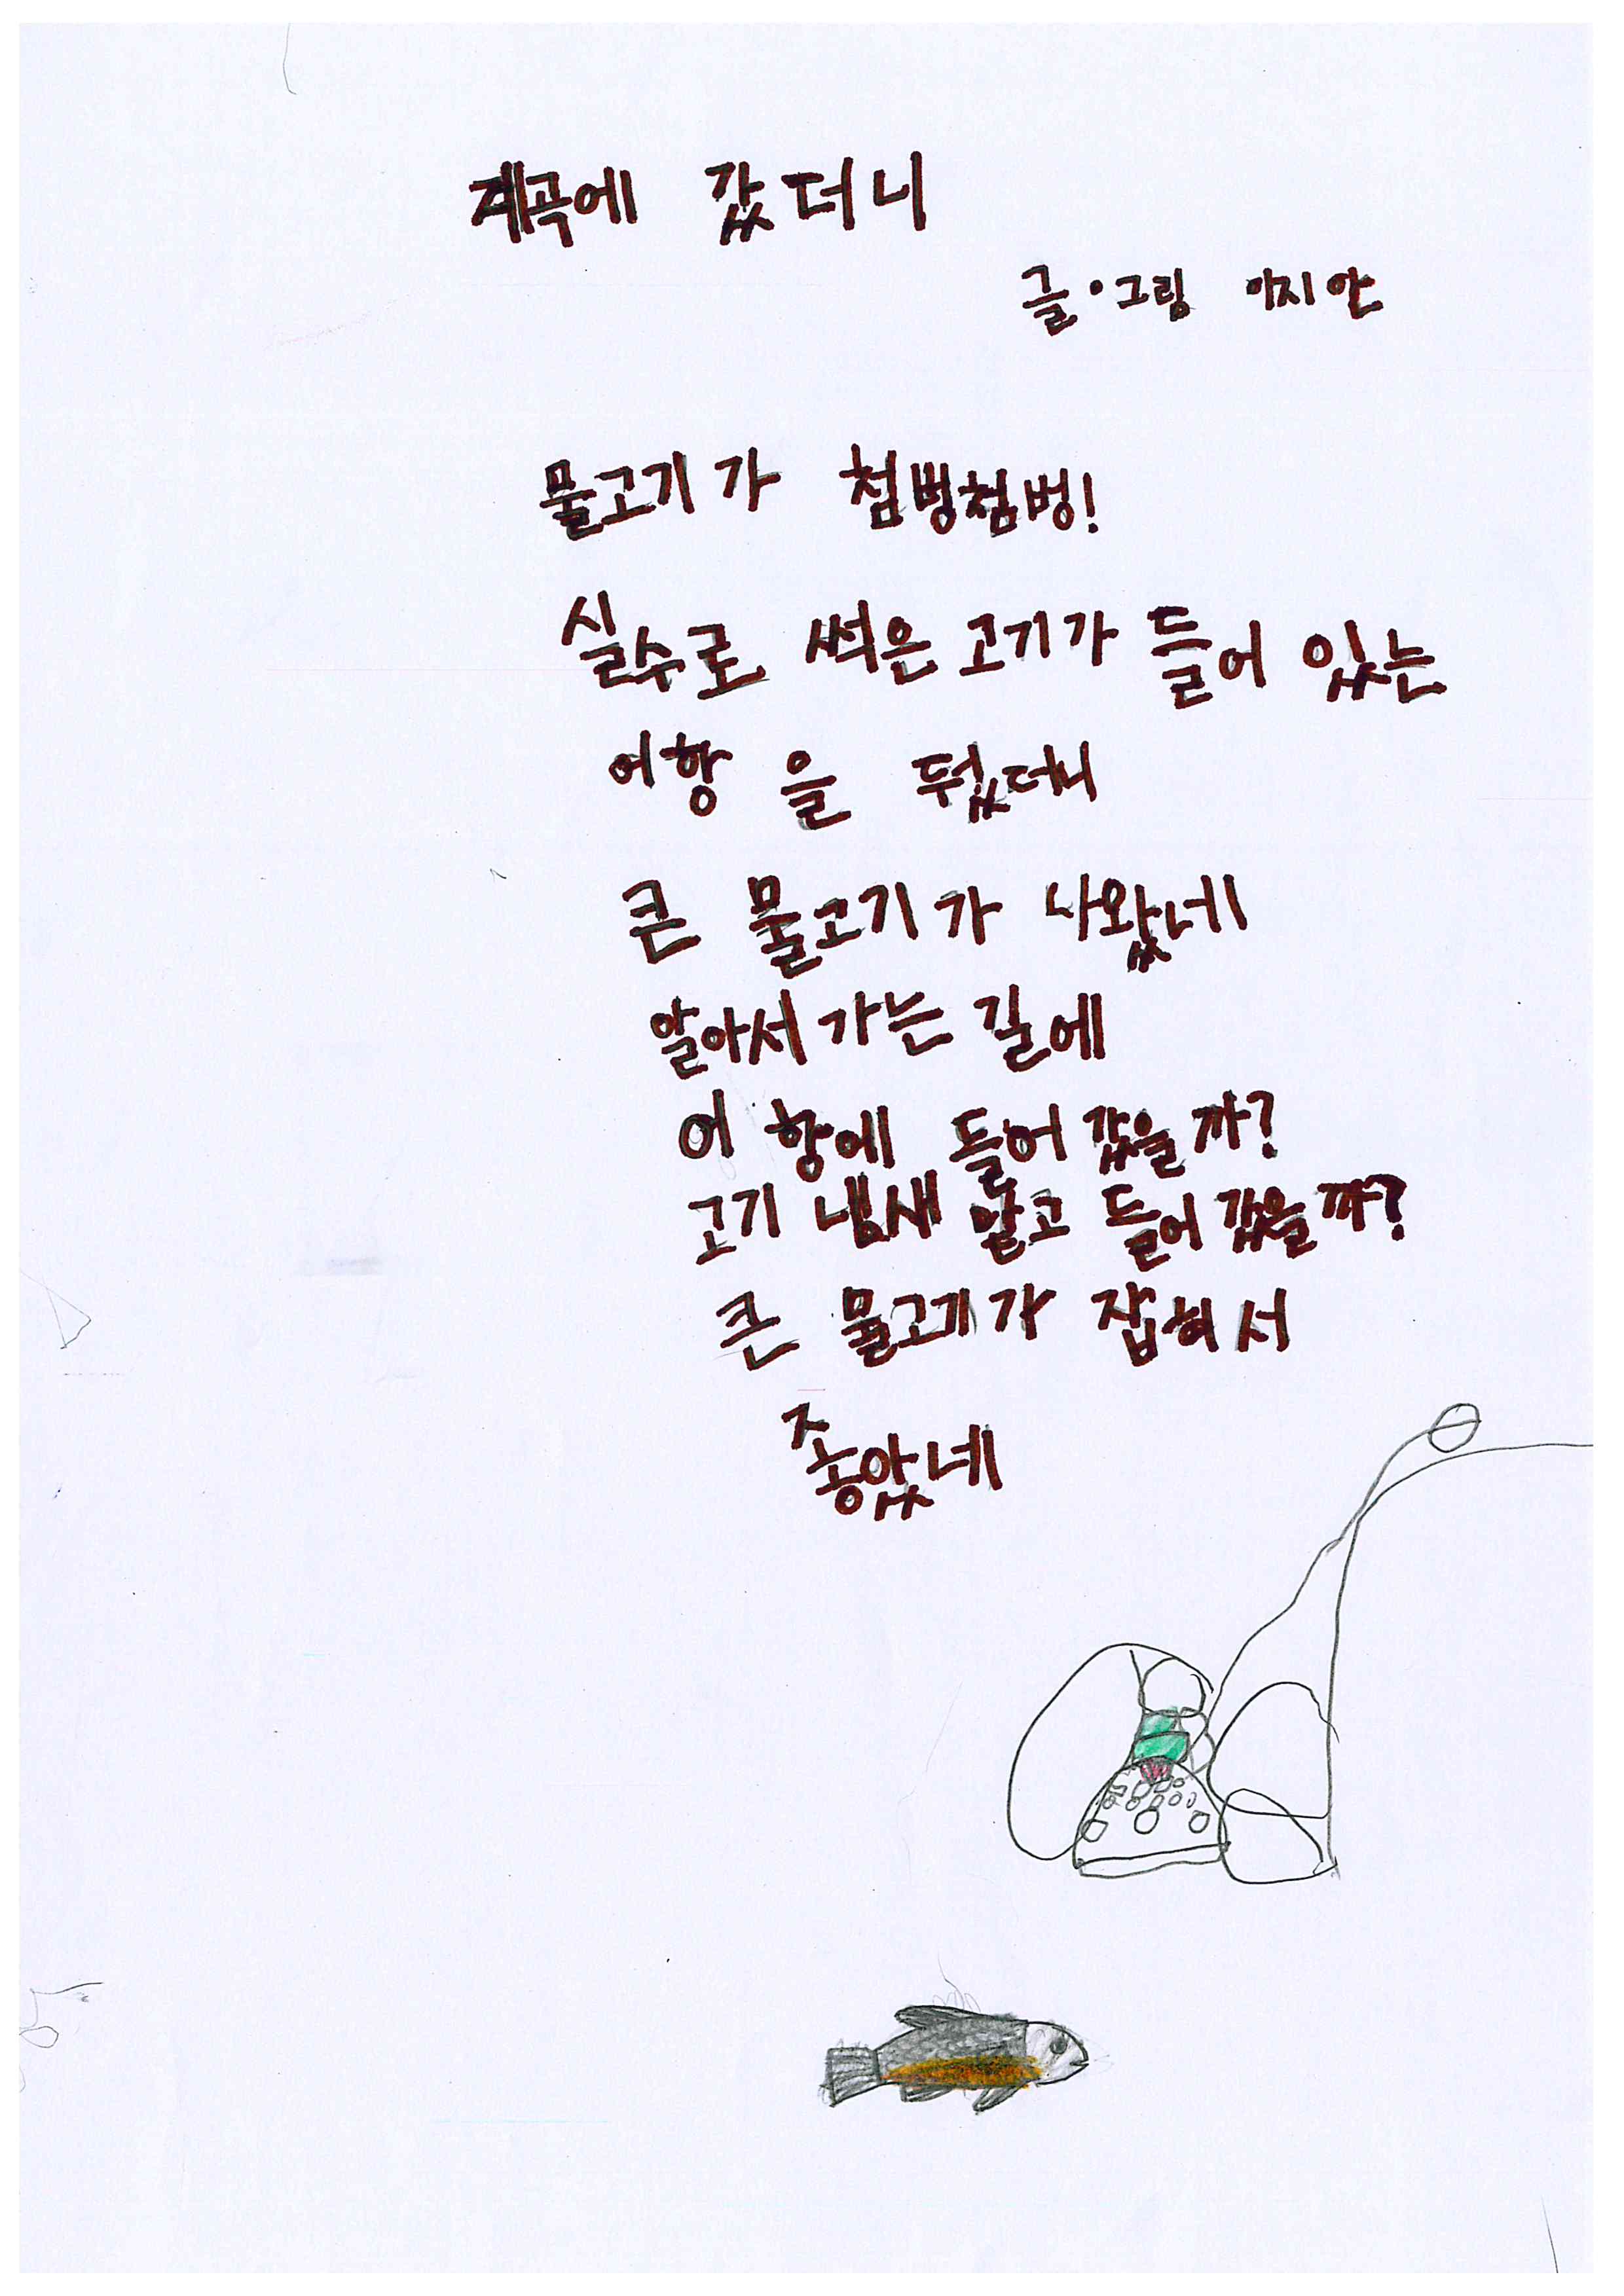 계곡에 갔더니
글·그림 이지안
물고기가 첨벙첨벙!
실수로 썩은 고기가 들어 있는
어항을 뒀더니
큰 물고기가 나왔네
알아서 가는 길에
어항에 들어 갔을까?
고기 냄새 맡고 들어 갔을까?
큰 물고기가 잡혀서
좋았네